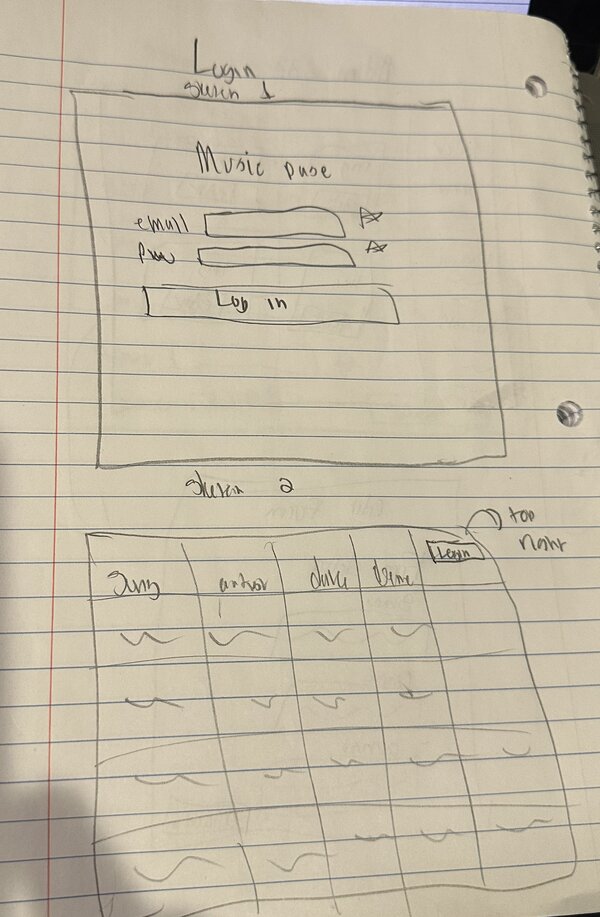 Login
Skreen 1
Music page
email
pw
Log in
Skreen 2
top
right
Login
Song author date time